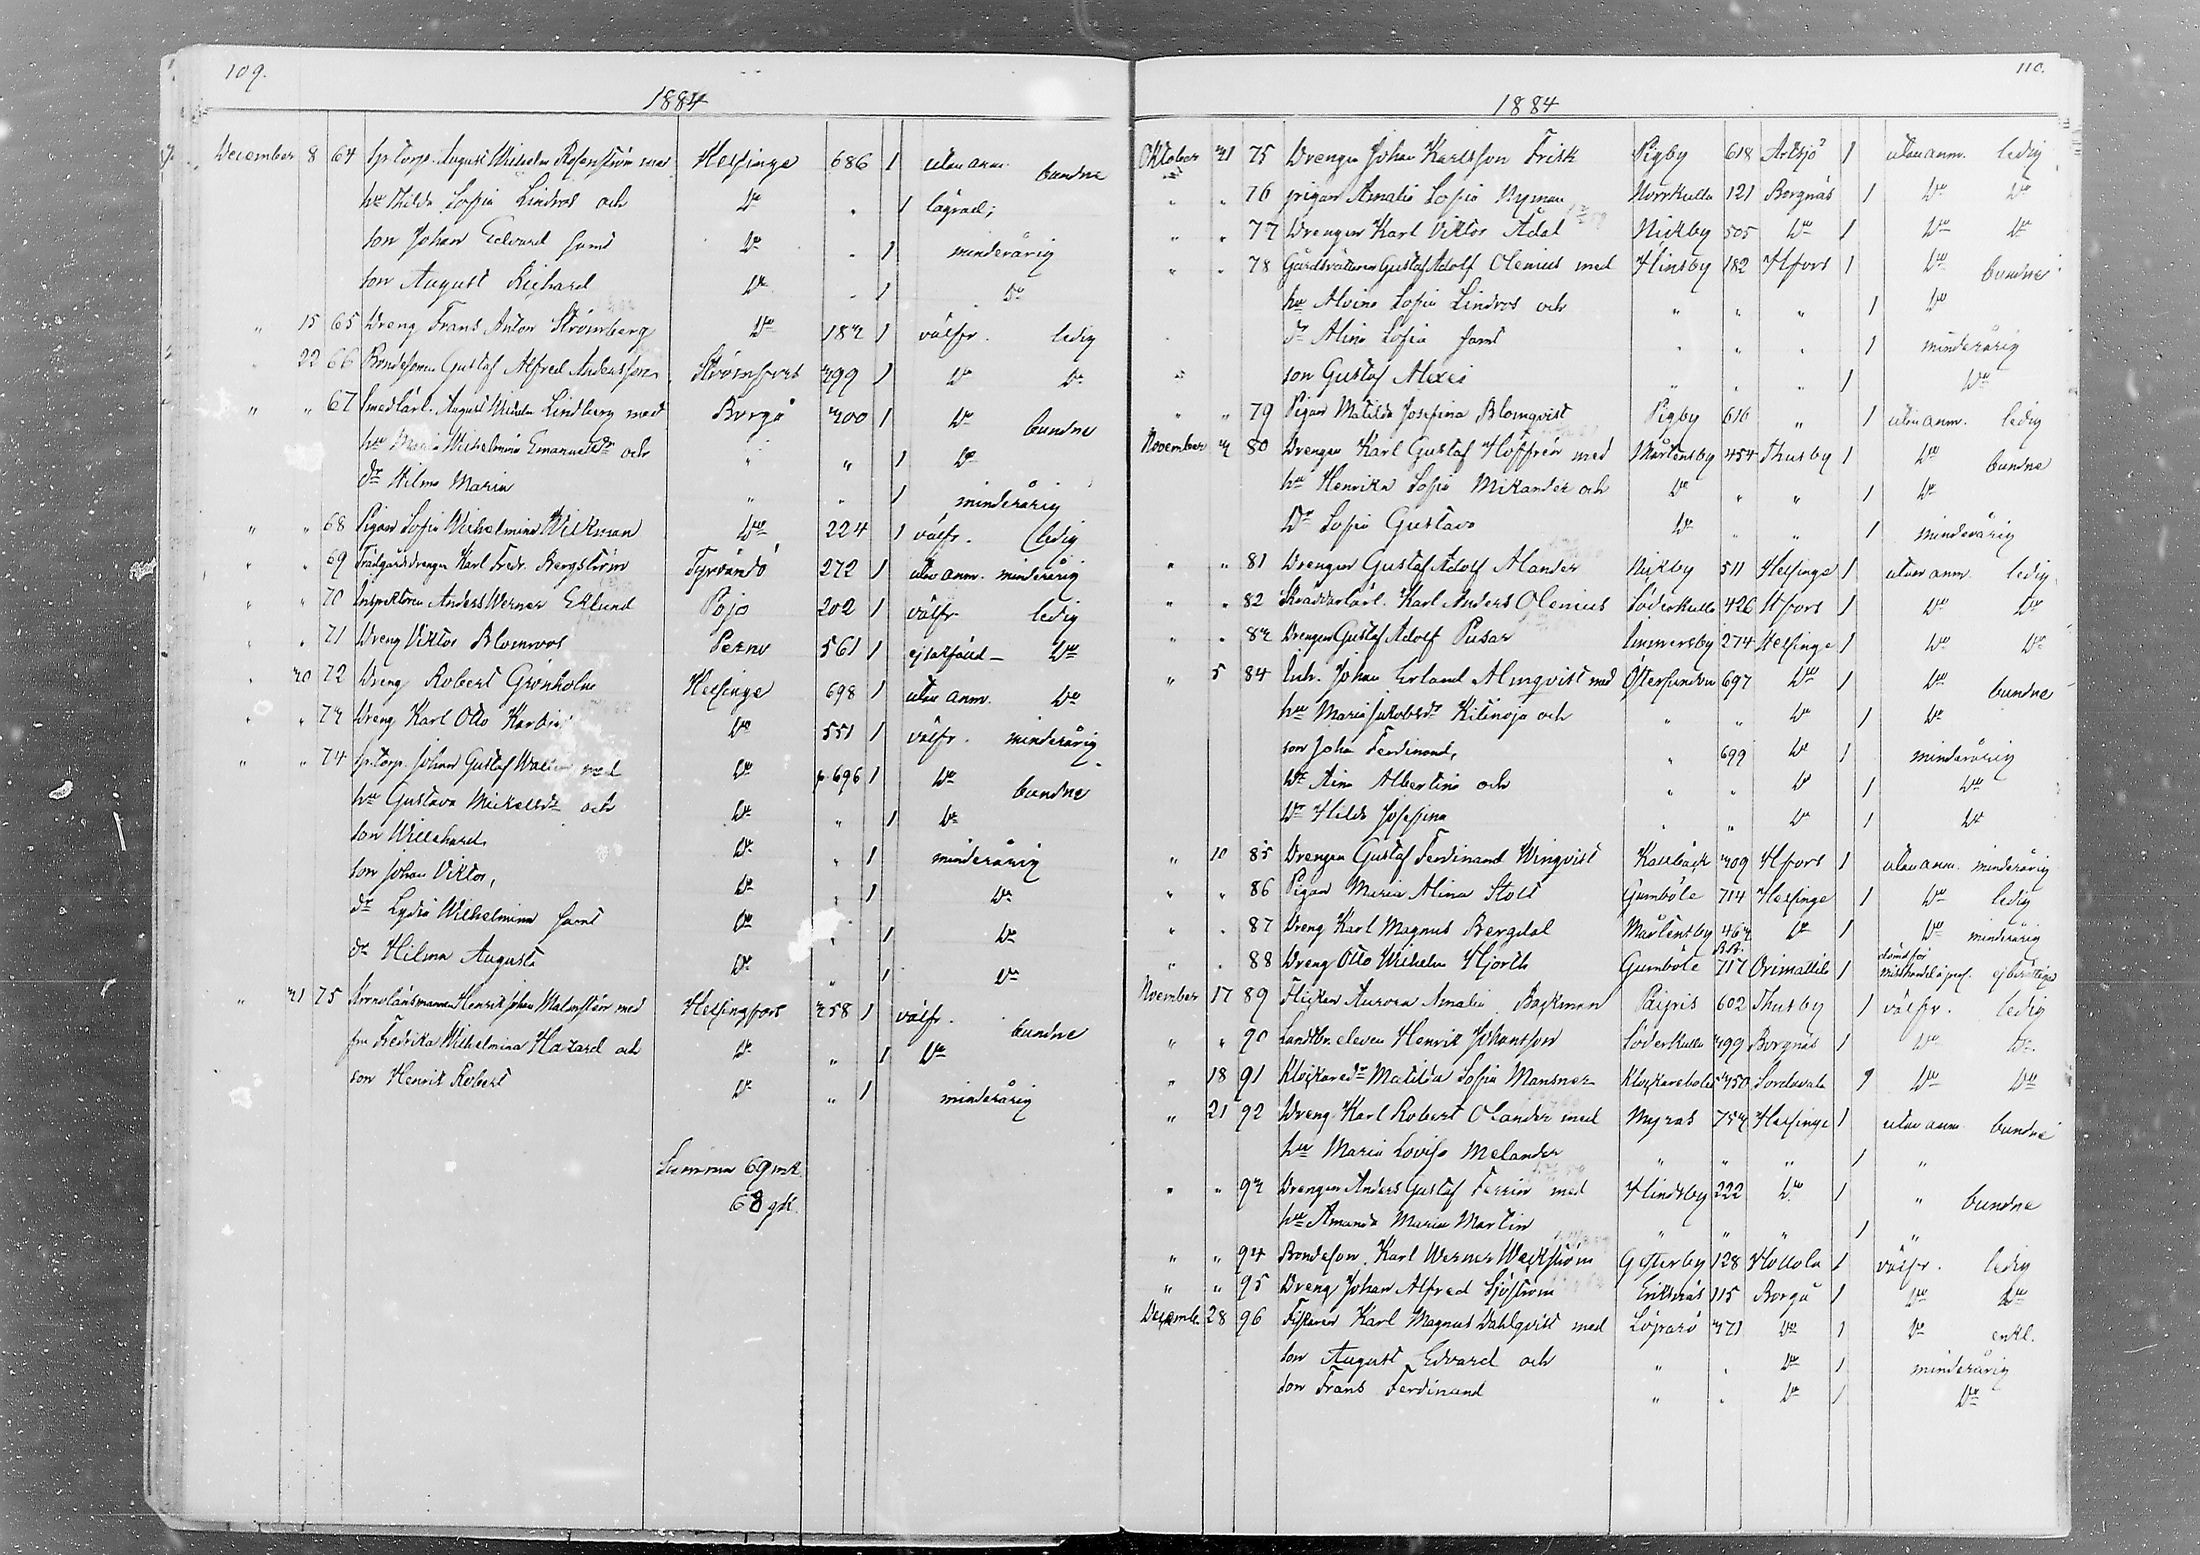 109.
1884
December 8 64 Sp.torp. August Wilhelm Rosenström med Helsinge 686 1 utan anm. bundne
hu Hilda Sofia Lindros och Do 1 lagvad;
son Johan Edvard samt Do 1 minderårig
son August Richard Do 1 Do
" 15 65 Dreng Frans Anton Strömberg Do 182 1 välfr. ledig
22 66 Bondesonen Gustaf Alfred Andersson Strömfors 399 1 Do Do
" " 67 Smedlärl. August Wilhelm Lindberg med Borgå 300 1 Do bundne
hu Maria Wilhelmina Emanuelsdr och " " 1 Do
dr Hilma Maria " " 1 minderårig
" " 68 Pigan Sofia Wilhelmina Wikman Do 224 1 välfr. ledig
" " 69 Trädgårdsdrengen Karl Fredr. Bergström Tyrväntö 272 1 utan anm. minderårig
" " 70 Inspektoren Anders Werner Eklund Pojo 202 1 välfr ledig
" " 71 Dreng Viktor Blomroos Perno 561 1 Do
" 30 72 Dreng Robert Grönholm Helsinge 698 1 utan anm. Do
" " 73 Dreng Karl Otto Do 551 1 välfr. minderårig
" " 74 Sp.torp. Johan Gustaf med Do 696 1 Do bundne
hu Gustava Mickelsdr och Do " 1 Do
son Willehard, Do " 1 minderårig
son Johan Viktor, Do " 1 Do
dr Lydia Wilhelmina samt Do " 1 Do
dr Hilma Augusta Do " 1 Do
" 31 75 Kronolänsmannen Henrik Johan Malmström med Helsingfors 358 1 välfr. bundne
fru Fredrika Wilhelmina Hazard och Do " 1 Do
son Henrik Robert Do " 1 minderårig
Summa 69 mk.
68 qk.
110.
1884
Oktober 31 75 Drengen Johan Karlsson Frisk Pigby 618 Artsjö 1 utan anm. ledig
" " 76 pigan Amalia Sofia Nyman Norrkulla 121 Borgnäs 1 Do Do
" " 77 Drengen Karl Viktor Ådal Nickby 505 Do 1 Do Do
" " 78 Gustaf Adolf Olenius med Hinsby 182 Hfors 1 Do bundne
hu Alvina Sofia Lindros och " " " 1 Do
dr Alina Sofia samt " " " 1 minderårig
son Gustaf Alexei " " " 1 Do
" " 79 Pigan Matilda Josefina Blomqvist Pigby 616 " 1 utan anm. ledig
November 3 80 Drengen Karl Gustaf Höffrén med Mårtensby 454 Thusby 1 Do bundne
hu Henrika Sofia Mikander och Do " " 1 Do
Dr Sofia Gustava Do " " 1 minderårig
" " 81 Drengen Gustaf Adolf Alander Nickby 511 Helsinge 1 utan anm. ledig
" " 82 Skräddarlärl. Karl Anders Olenius Söderkulla 426 Hfors 1 Do Do
" " 83 Drengen Gustaf Adolf Pusar Immersby 274 Helsinge 1 Do Do
" 5 84 Inh. Johan Erland Almqvist med Östersundom 697 Do 1 Do bundne
hu Maria Jakobsdr Kitinoja och " " Do 1 Do
son Johan Ferdinand, " 699 Do 1 minderårig
Dr Aina Albertina och " " Do 1 Do
Dr Hilda Josefina " " Do 1 Do
" 10 85 Drengen Gustaf Ferdinand Wingvist Kallbäck 309 Hfors 1 utan anm. minderårig
" " 86 Pigan Maria Alina Stolt Gumböle 714 Helsinge 1 Do ledig
" " 87 Dreng Karl Magnus Bergdal Mårtensby 463 Do 1 Do minderårig
" " 88 Dreng Otto Wilhelm Hjorth Gumböle 717 Orimattila 1 dömd för
November 17 89 Flickan Aurora Amalia Backman Paipis 602 Thusby 1 välfr. ledig
" " 90 Landtbr. eleven Henrik Johansson Söderkulla 399 Borgnäs 1 Do Do
" 18 91 Klockaredr Matilda Sofia Mansner Klockarebolet 350 Sordavala 1 Do Do
" 21 92 Dreng Karl Robert Olander med Myras 753 Helsinge 1 utan anm. bundne
hu Maria Lovisa Melander " " " 1 "
" " 93 Drengen Anders Gustaf Ferrin med Hindsby 222 Do 1 " bundne
hu Amanda Maria Martin " " " 1 "
" " 94 Bondeson Karl Werner Weckström Gesterby 128 Hollola 1 välfr. ledig
" " 95 Dreng Johan Alfred Sjöström Eriksnäs 115 Borgå 1 Do Do
Decembr. 28 96 Fiskaren Karl Magnus Dahlqvist med Löparö 371 Do 1 Do enkl.
son August Edvard och " " Do 1 minderårig
son Frans Ferdinand " " Do 1 Do